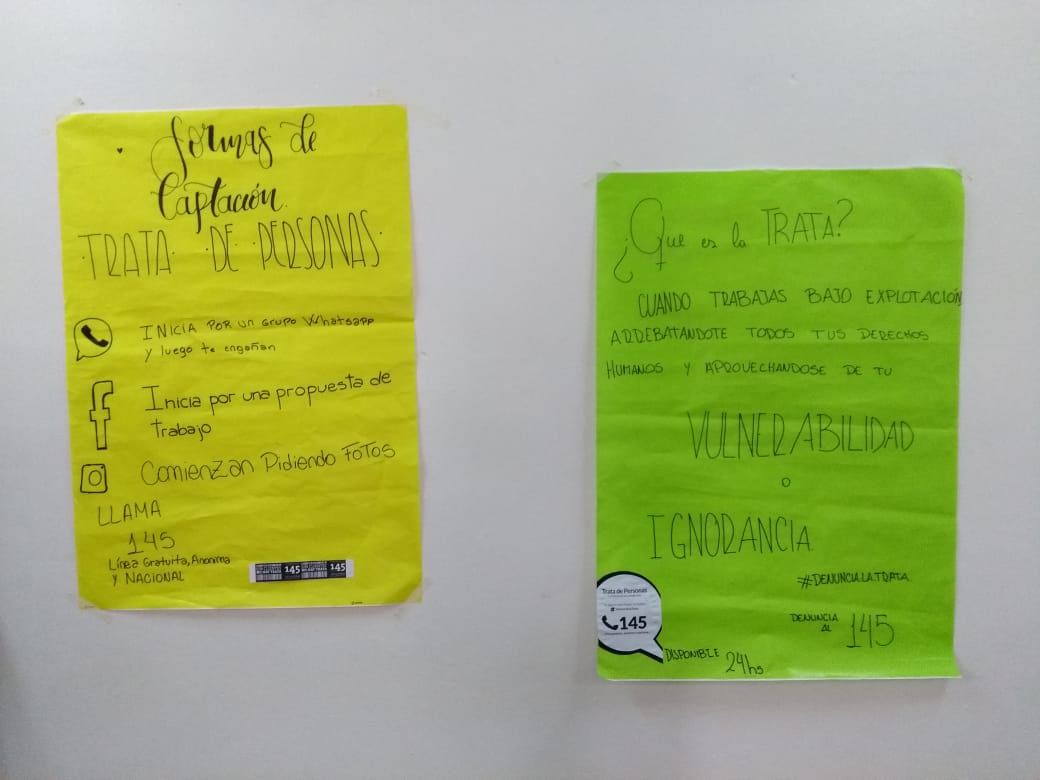 formas de
Captación
TRATA DE PERSONAS
INICIA POR un GRUPO Whatsapp
y luego te engañan
Inicia por una propuesta de
trabajo
Comienzan Pidiendo FOTOS
LLAMA
145
Línea Gratuita, Anonima
y NACIONAL
145
145
¿Que es la TRATA?
CUANDO TRABAJAS BAJO EXPLOTACIÓN
ARREBATANDOTE TODOS TUS DERECHOS
HUMANOS Y APROVECHANDOSE DE TU
VULNERABILIDAD
O
IGNORANCIA
#DENUNCIA.LA.TRATA
DENUNCIA
AL
145
Trata de Personas
145
DISPONIBLE 24hs